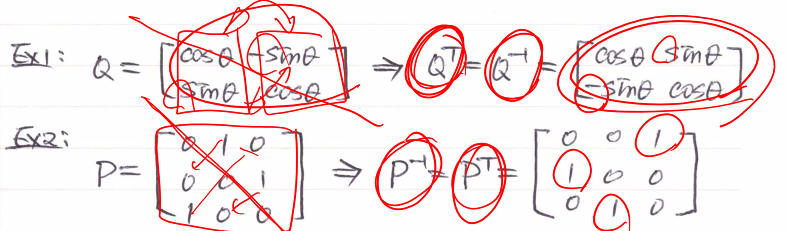 Ex1: Q = [cosθ -sinθ; sinθ cosθ] ⇒ Qᵀ = Q⁻¹ = [cosθ sinθ; -sinθ cosθ]
Ex2: P = [0 1 0; 0 0 1; 1 0 0] ⇒ P⁻¹ = Pᵀ = [0 0 1; 1 0 0; 0 1 0]